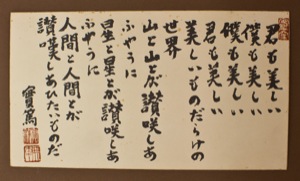 君も美しい
僕も美しい
僕も美しい
君も美しい
美しいものだらけの
世界
山と山とが讃嘆しあ
ふやうに
星と星とが讃嘆しあ
ふやうに
人間と人間とが
讃嘆しあひたいものだ
實篤